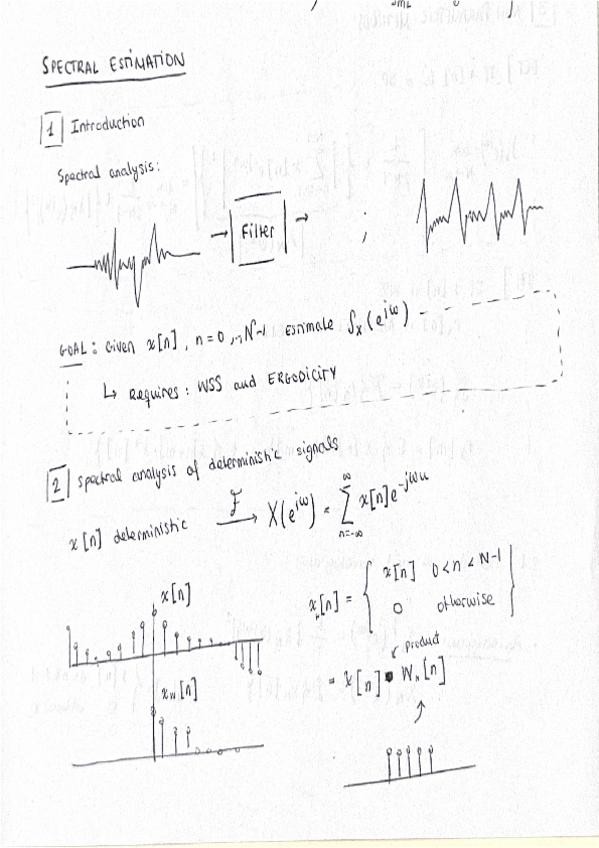 SPECTRAL ESTIMATION
1 Introduction
Spectral analysis:
→ Filter → ;
GOAL: Given x[n], n=0,..,N-1 estimate S_x(e^{jω})
↳ Requires: WSS and ERGODICITY
2 Spectral analysis of deterministic signals
x[n] deterministic —F→ X(e^{jω}) = ∑_{n=-∞}^{∞} x[n]e^{-jωn}
x[n]
x_N[n] = { x[n] 0<n<N-1
0 otherwise }
product
= x[n] • W_N[n]
x_N[n]